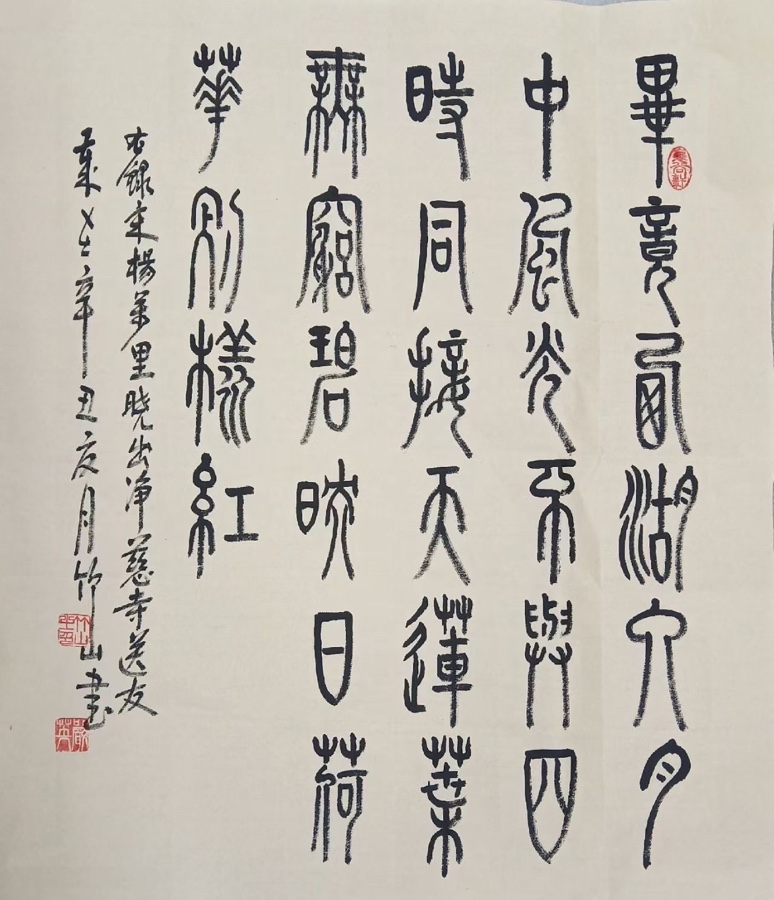 畢竟西湖六月
中風光不與四
時同接天蓮葉
無窮碧映日荷
華別樣紅
右錄宋楊萬里曉出净慈寺送友
歲在辛丑夏月竹山書